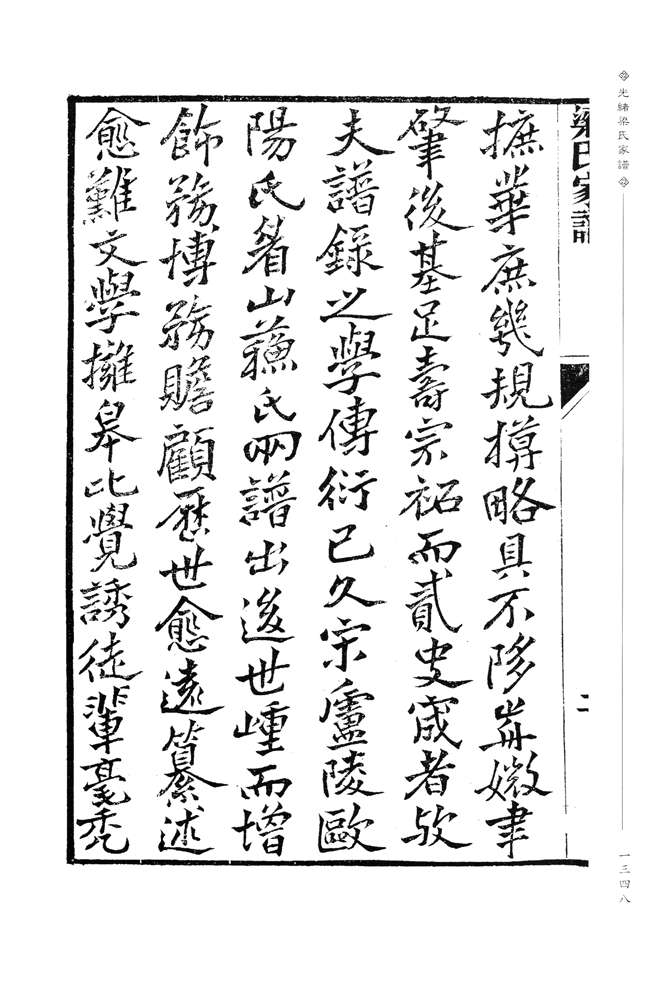 光緒梁氏家譜
一三四八
梁氏家譜
二
摭華庶幾規橅略具不陊耑媺聿
肇後基足壽宗祏而貳史宬者歟
夫譜錄之學傳衍已久宋廬陵歐
陽氏眉山蘇氏兩譜出後世崚而增
飾務博務贍顧歷世愈遠纂述
愈難文學擁皋比覺誘徒輩毫禿